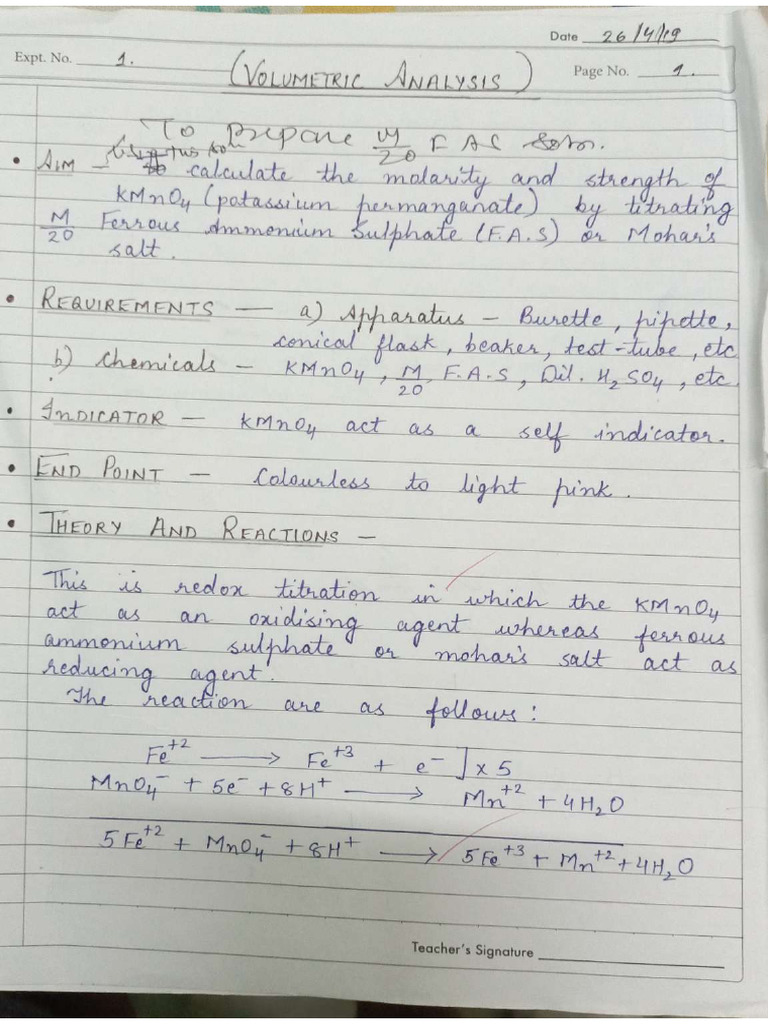 Date 26/4/19
Expt. No. 1.
(VOLUMETRIC ANALYSIS)
Page No. 1.
To Prepare M/20 F A S Soln.
• AIM - calculate the molarity and strength of
KMnO₄ (potassium permanganate) by titrating
M/20 Ferrous Ammonium Sulphate (F.A.S) or Mohar's
salt.
• REQUIREMENTS — a) Apparatus - Burette, pipette,
conical flask, beaker, test-tube, etc
b) Chemicals - KMnO₄, M/20 F.A.S, Dil. H₂SO₄, etc.
• INDICATOR — KMnO₄ act as a self indicator.
• END POINT — Colourless to light pink.
• THEORY AND REACTIONS -
This is redox titration in which the KMnO₄
act as an oxidising agent whereas ferrous
ammonium sulphate or mohar's salt act as
reducing agent.
The reaction are as follows:
Fe⁺² ⟶ Fe⁺³ + e⁻ ] x 5
MnO₄⁻ + 5e⁻ + 8H⁺ ⟶ Mn⁺² + 4H₂O
5Fe⁺² + MnO₄⁻ + 8H⁺ ⟶ 5Fe⁺³ + Mn⁺² + 4H₂O
Teacher's Signature